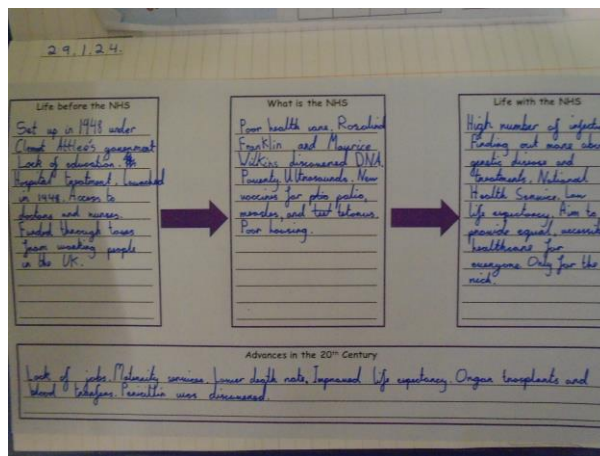 29.1.24.
Life before the NHS
Set up in 1948 under
Clement Attlee's government
Lack of education.
Hospital treatment. Launched
in 1948. Access to
doctors and nurses.
Funded through taxes
from working people
in the UK.
What is the NHS
Poor health care. Rosalind
Franklin and Maurice
Wilkins discovered DNA.
Poverty. Ultrasounds. New
vaccines for polio,
measles, and tetanus.
Poor housing.
Life with the NHS
High number of
Finding out more
genetic disease and
treatments. National
Health Service. Low
life expectancy. Aim to
provide equal,
healthcare for
everyone. Only for the
rich.
Advances in the 20th Century
Lack of jobs. Maternity services. Lower death rate, Improved life expectancy. Organ transplants and
blood Penicillin was discovered.